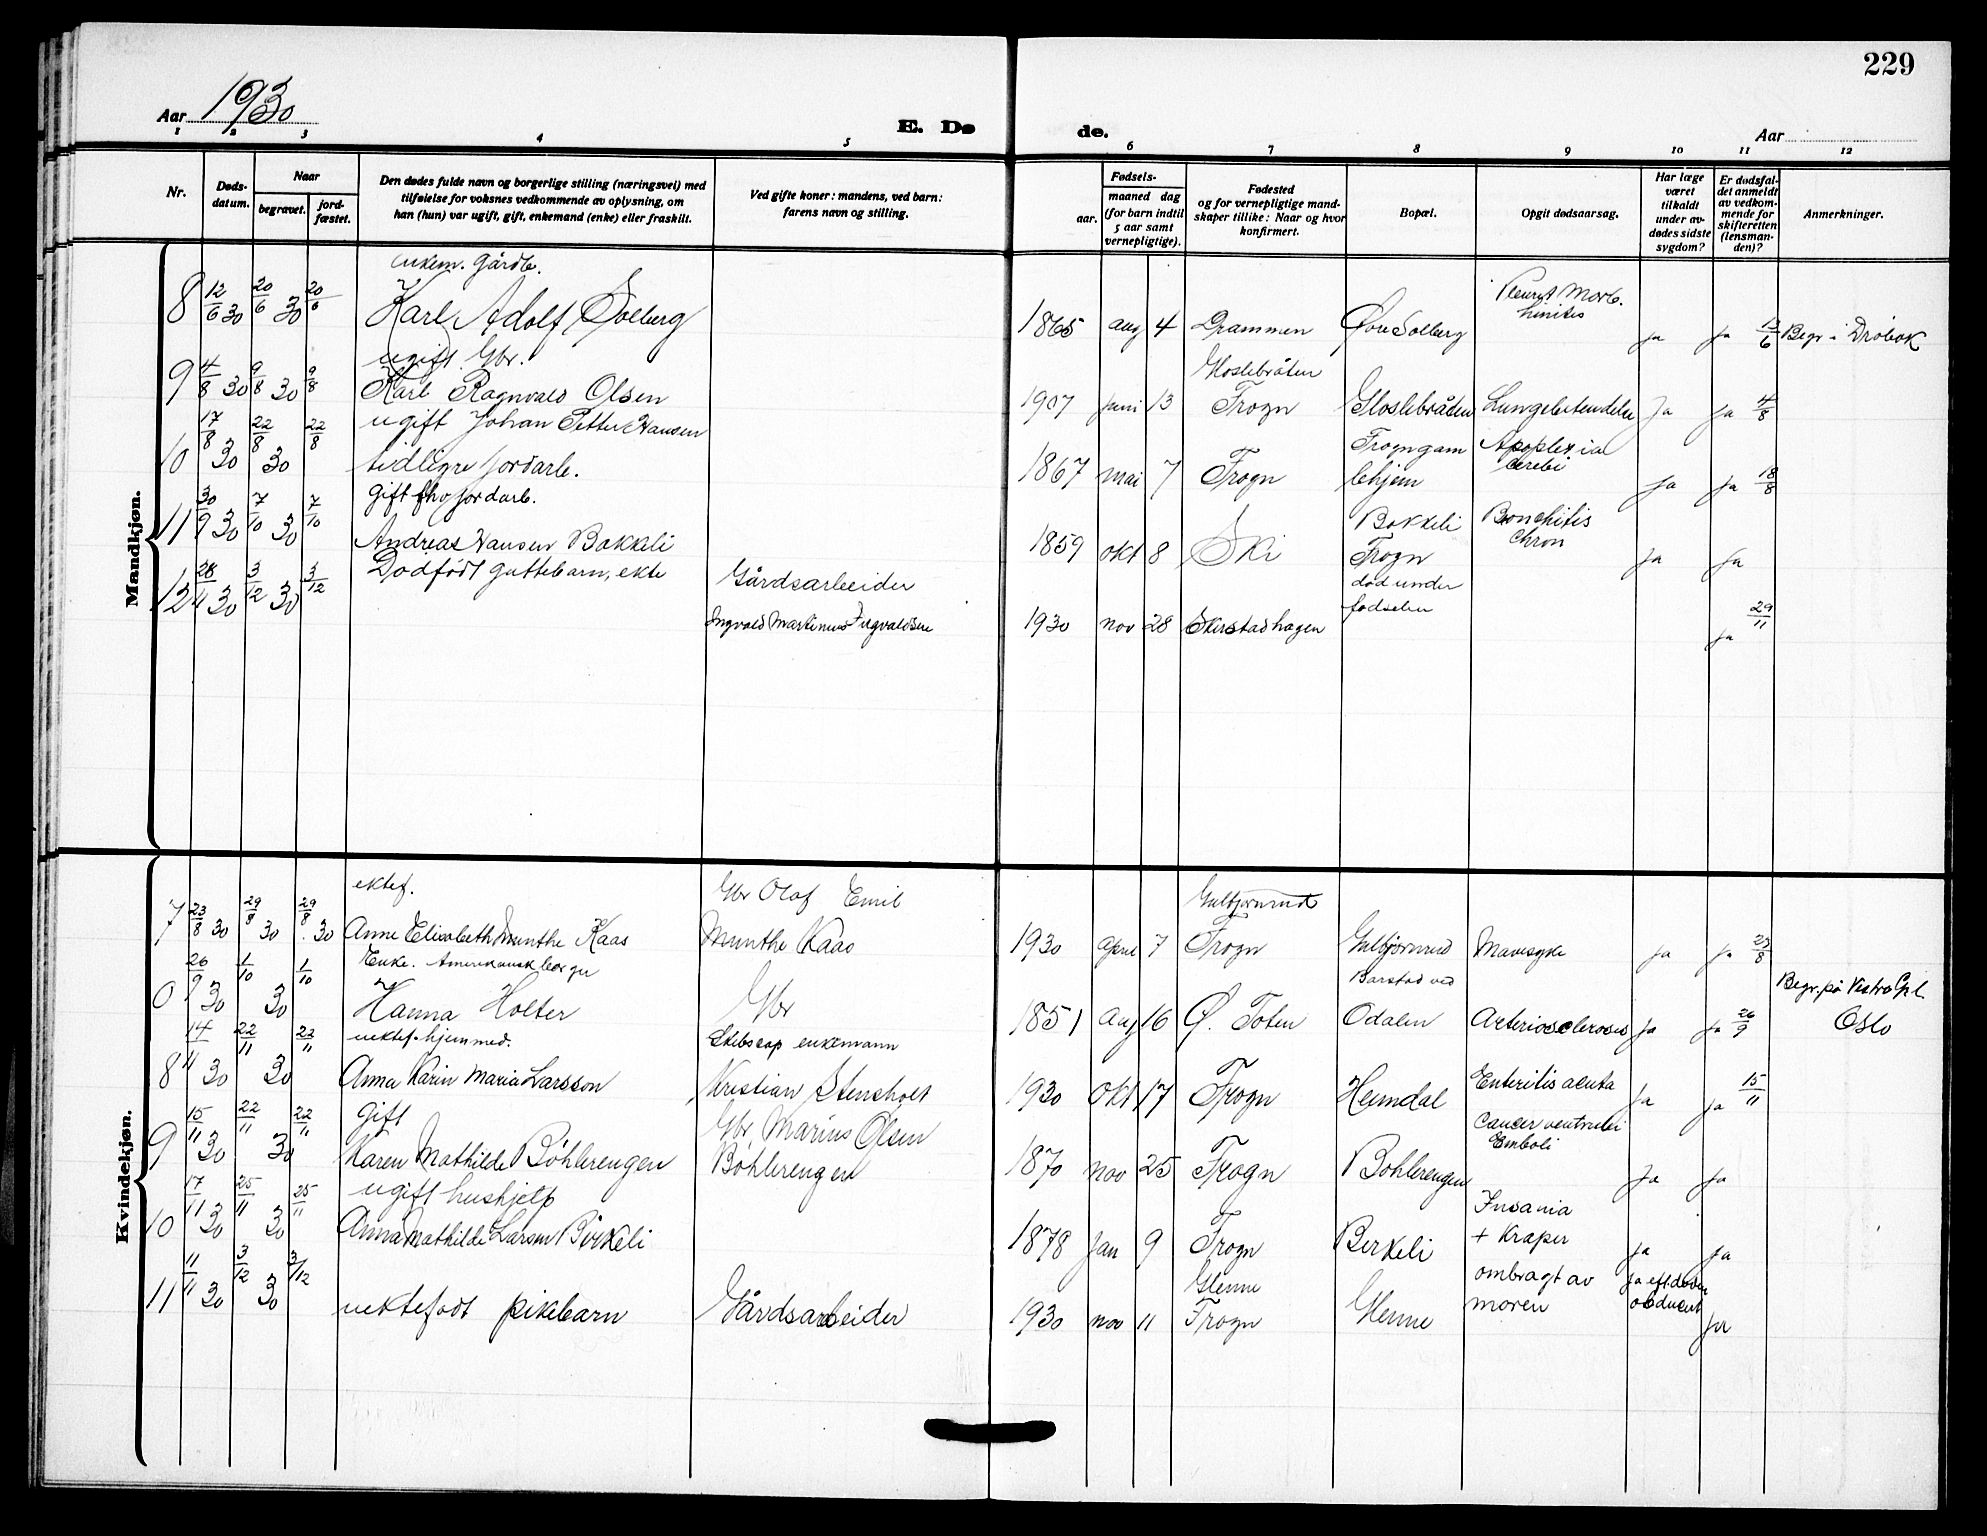 229
Aar 1930
E. Dø de.
Aar
1 2 3 4 5 6 7 8 9 10 11 12
Nr.
Døds-
datum.
Naar
begravet.
jord-
fæstet.
Den dødes fulde navn og borgerlige stilling (næringsvei) med
tilføielse for voksnes vedkommende av oplysning, om
han (hun) var ugift, gift, enkemand (enke) eller fraskilt.
Ved gifte koner: mandens, ved barn:
farens navn og stilling.
Fødsels-
aar.
maaned dag
(for barn indtil
5 aar samt
vernepligtige).
Fødested
og for vernepligtige mand-
skaper tillike: Naar og hvor
konfirmert.
Bopæl.
Opgit dødsaarsag.
Har læge
været
tilkaldt
under av-
dødes sidste
sygdom?
Er dødsfal-
det anmeldt
av vedkom-
mende for
skifteretten
(lensman-
den)?
Anmerkninger.
Mandkjøn.
enkem. Gårdb.
8 12/6 30 20/6 30 20/6 Karl Adolf Solberg
1865 aug 4 Drammen Øvre Solberg
ja ja 13/6 Begr. i Drøbak
ugift Gbr.
9 4/8 30 9/8 30 9/8 Karl Ragnvald Olsen
1907 juni 13 Gloslebråten
Frogn Gloslebråten Lungebetendelse Ja ja 4/8
10 17/8 30 22/8 30 22/8 ugift Johan Petter Hansen
tidligre jordarb.
1867 mai 7 Frogn Frogn gam
lehjem Apoplexia
cerebi ja ja 18/8
11 30/9 30 7/10 30 7/10 gift fhv jordarb.
Andreas Hansen Bakkeli
1859 okt 8 Ski Bakkeli
Frogn Bronchitis
Chron ja ja
12 28/11 30 3/12 30 3/12 Dødfødt guttebarn, ekte
Gårdsarbeider
Ingvald Martinius Ingvaldsen
1930 nov 28 Skirstadhagen død under
fødselen ja 29/11
Kvindekjøn.
ektef.
7 23/8 30 29/8 30 29/8 30 Anne Elisabeth Munthe Kaas
Gbr Olaf Emil
Munthe Kaas
1930 april 7 Gulbjørnrud
Frogn Gulbjørnrud Mavesyke ja ja 23/8
0 26/9 30 1/10 30 1/10 Enke. Amerikansk borger
Hanna Holter
Gbr
1851 Aug 16 Ø. Toten Barstad ved
Odalen Arteriosclerosis ja ja 26/9 Begr. på Vestre Gr.l.
Oslo
8 14/11 30 22/11 30 22/11 uektef. hjemmed.
Anna Karin Maria Larsson
Skibscap enkemann
Kristian Stensholt
1930 Okt 17 Frogn Heimdal Enteritis acuta Ja ja 15/11
9 15/11 30 22/11 30 22/11 gift
Karen Mathilde Bøhlerengen
Gbr. Marius Olsen
Bøhlerengen
1870 nov 25 Frogn Bøhlerengen Cancer ventriculi
Emboli Ja ja
10 17/11 30 25/11 30 25/11 ugift hushjelp
Anna Mathilde Larsen Birkeli
1878 Jan 9 Frogn Birkeli Insania
+ Kraper ja ja
11 11/11 30 3/12 30 3/12 uektefødt pikebarn
Gårdsarbeider
1930 nov 11 Glenne
Frogn Glenne ombragt av
moren ja eft. døden
obducent ja